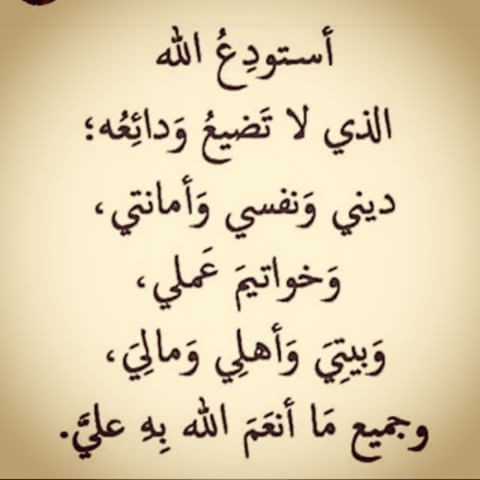 أستودِعُ الله
الذي لا تَضيعُ وَدائِعُه؛
ديني وَنفسي وَأمانتي،
وَخواتيمَ عَملي،
وَبيتِيَ وَأهلِي وَمالِيَ،
وجميع مَا أنعَمَ الله بِهِ عليَّ.